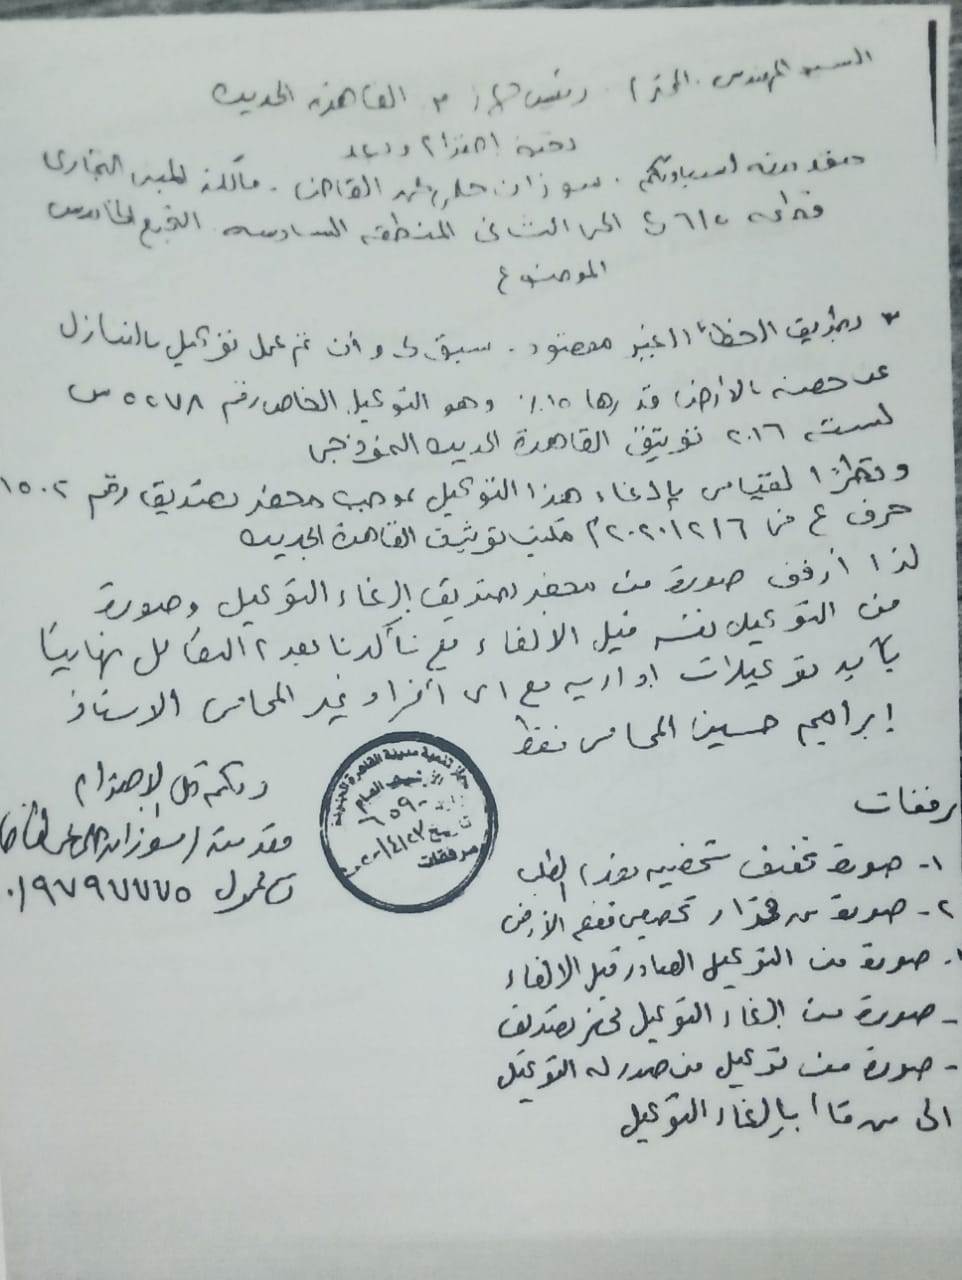 السيد المهندس المحترم / رئيس جهاز م. القاهرة الجديدة
تحية احترام وبعد
مقدمته لسيادتكم. سوزان حلمى القاضى. مالكة للمبنى التجارى
قطعة الحى الثانى المنطقة السادسة التجمع الخامس
الموضوع
بطريق الخطأ الغير مقصود. سبق لى وأن تم عمل توكيل بالتنازل
عن حصة بالأرض قدرها ١٥٪ وهو التوكيل الخاص رقم ٥٢٧٨ س
لسنة ٢٠١٦ توثيق القاهرة الجديدة النموذجى
ونظرًا لقيامى بإلغاء هذا التوكيل بموجب محضر تصديق رقم ١٥٠٢
حرف ع فى ٢٠٢٠/٢/٦م مكتب توثيق القاهرة الجديدة
لذا أرفق صورة من محضر تصديق إلغاء التوكيل وصورة
من التوكيل نفسه قبل الالغاء مع تأكدنا بعدم التعامل نهائيًا
بأية توكيلات ادارية مع اى أفراد غير المحامى الاستاذ
إبراهيم حسين المحامى فقط
ولكم كل الاحترام
مقدمته / سوزان حلمى القاضى
ت محمول
جهاز تنمية مدينة القاهرة الجديدة
مرفقات
مرفقات
١- صورة تحقيق شخصية مقدم الطلب
٢- صورة من قرار تخصيص قطعة الأرض
- صورة من التوكيل الصادر قبل الالغاء
- صورة من إلغاء التوكيل محضر تصديق
- صورة من توكيل من صدر له التوكيل
الى من قام بإلغاء التوكيل